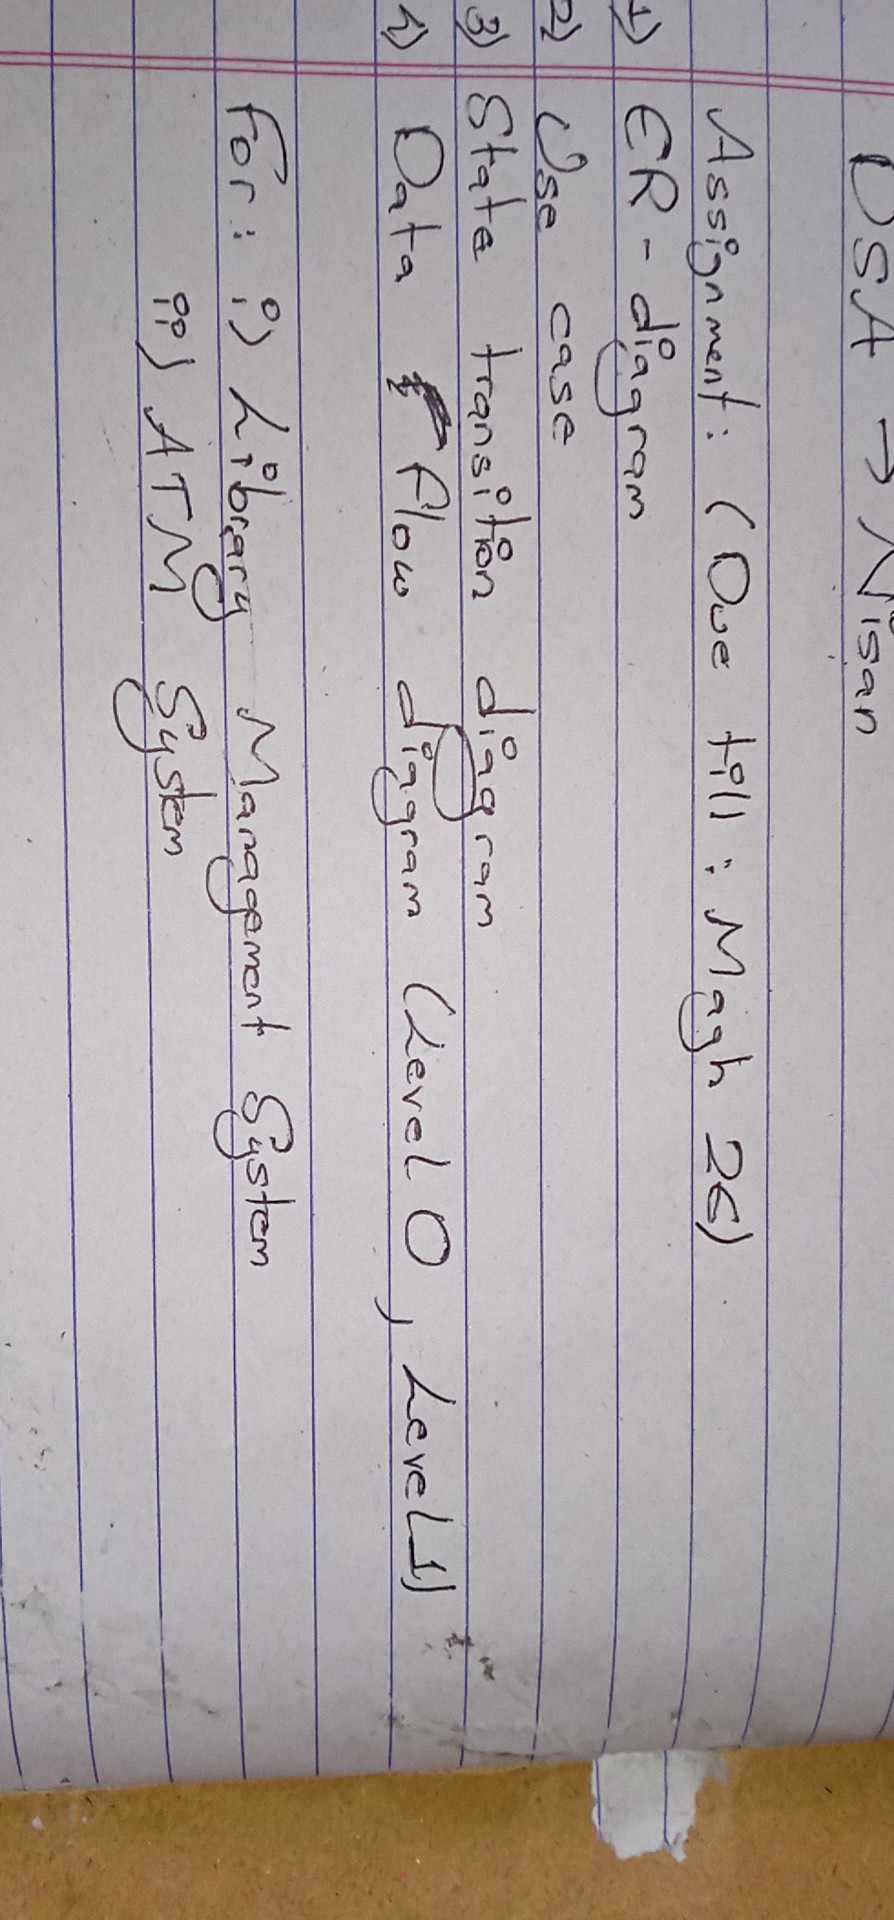 DSA → Nisan
Assignment: (Due till: Magh 26)
1) ER - diagram
2) Use case
3) State transition diagram
4) Data flow diagram (Level 0, Level 1)
For: i) Library Management System
ii) ATM System